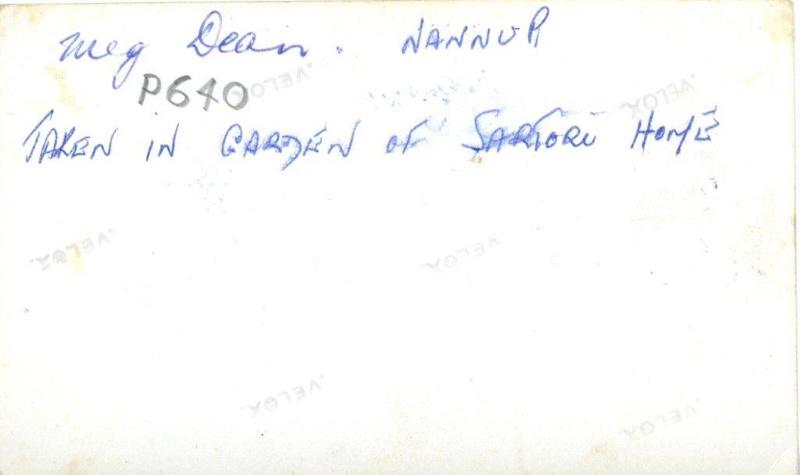 Meg Dean. NANNUP
P640
VELOX
VELOX
TAKEN IN GARDEN OF SARTORI HOME
VELOX
VELOX
VELOX
VELOX